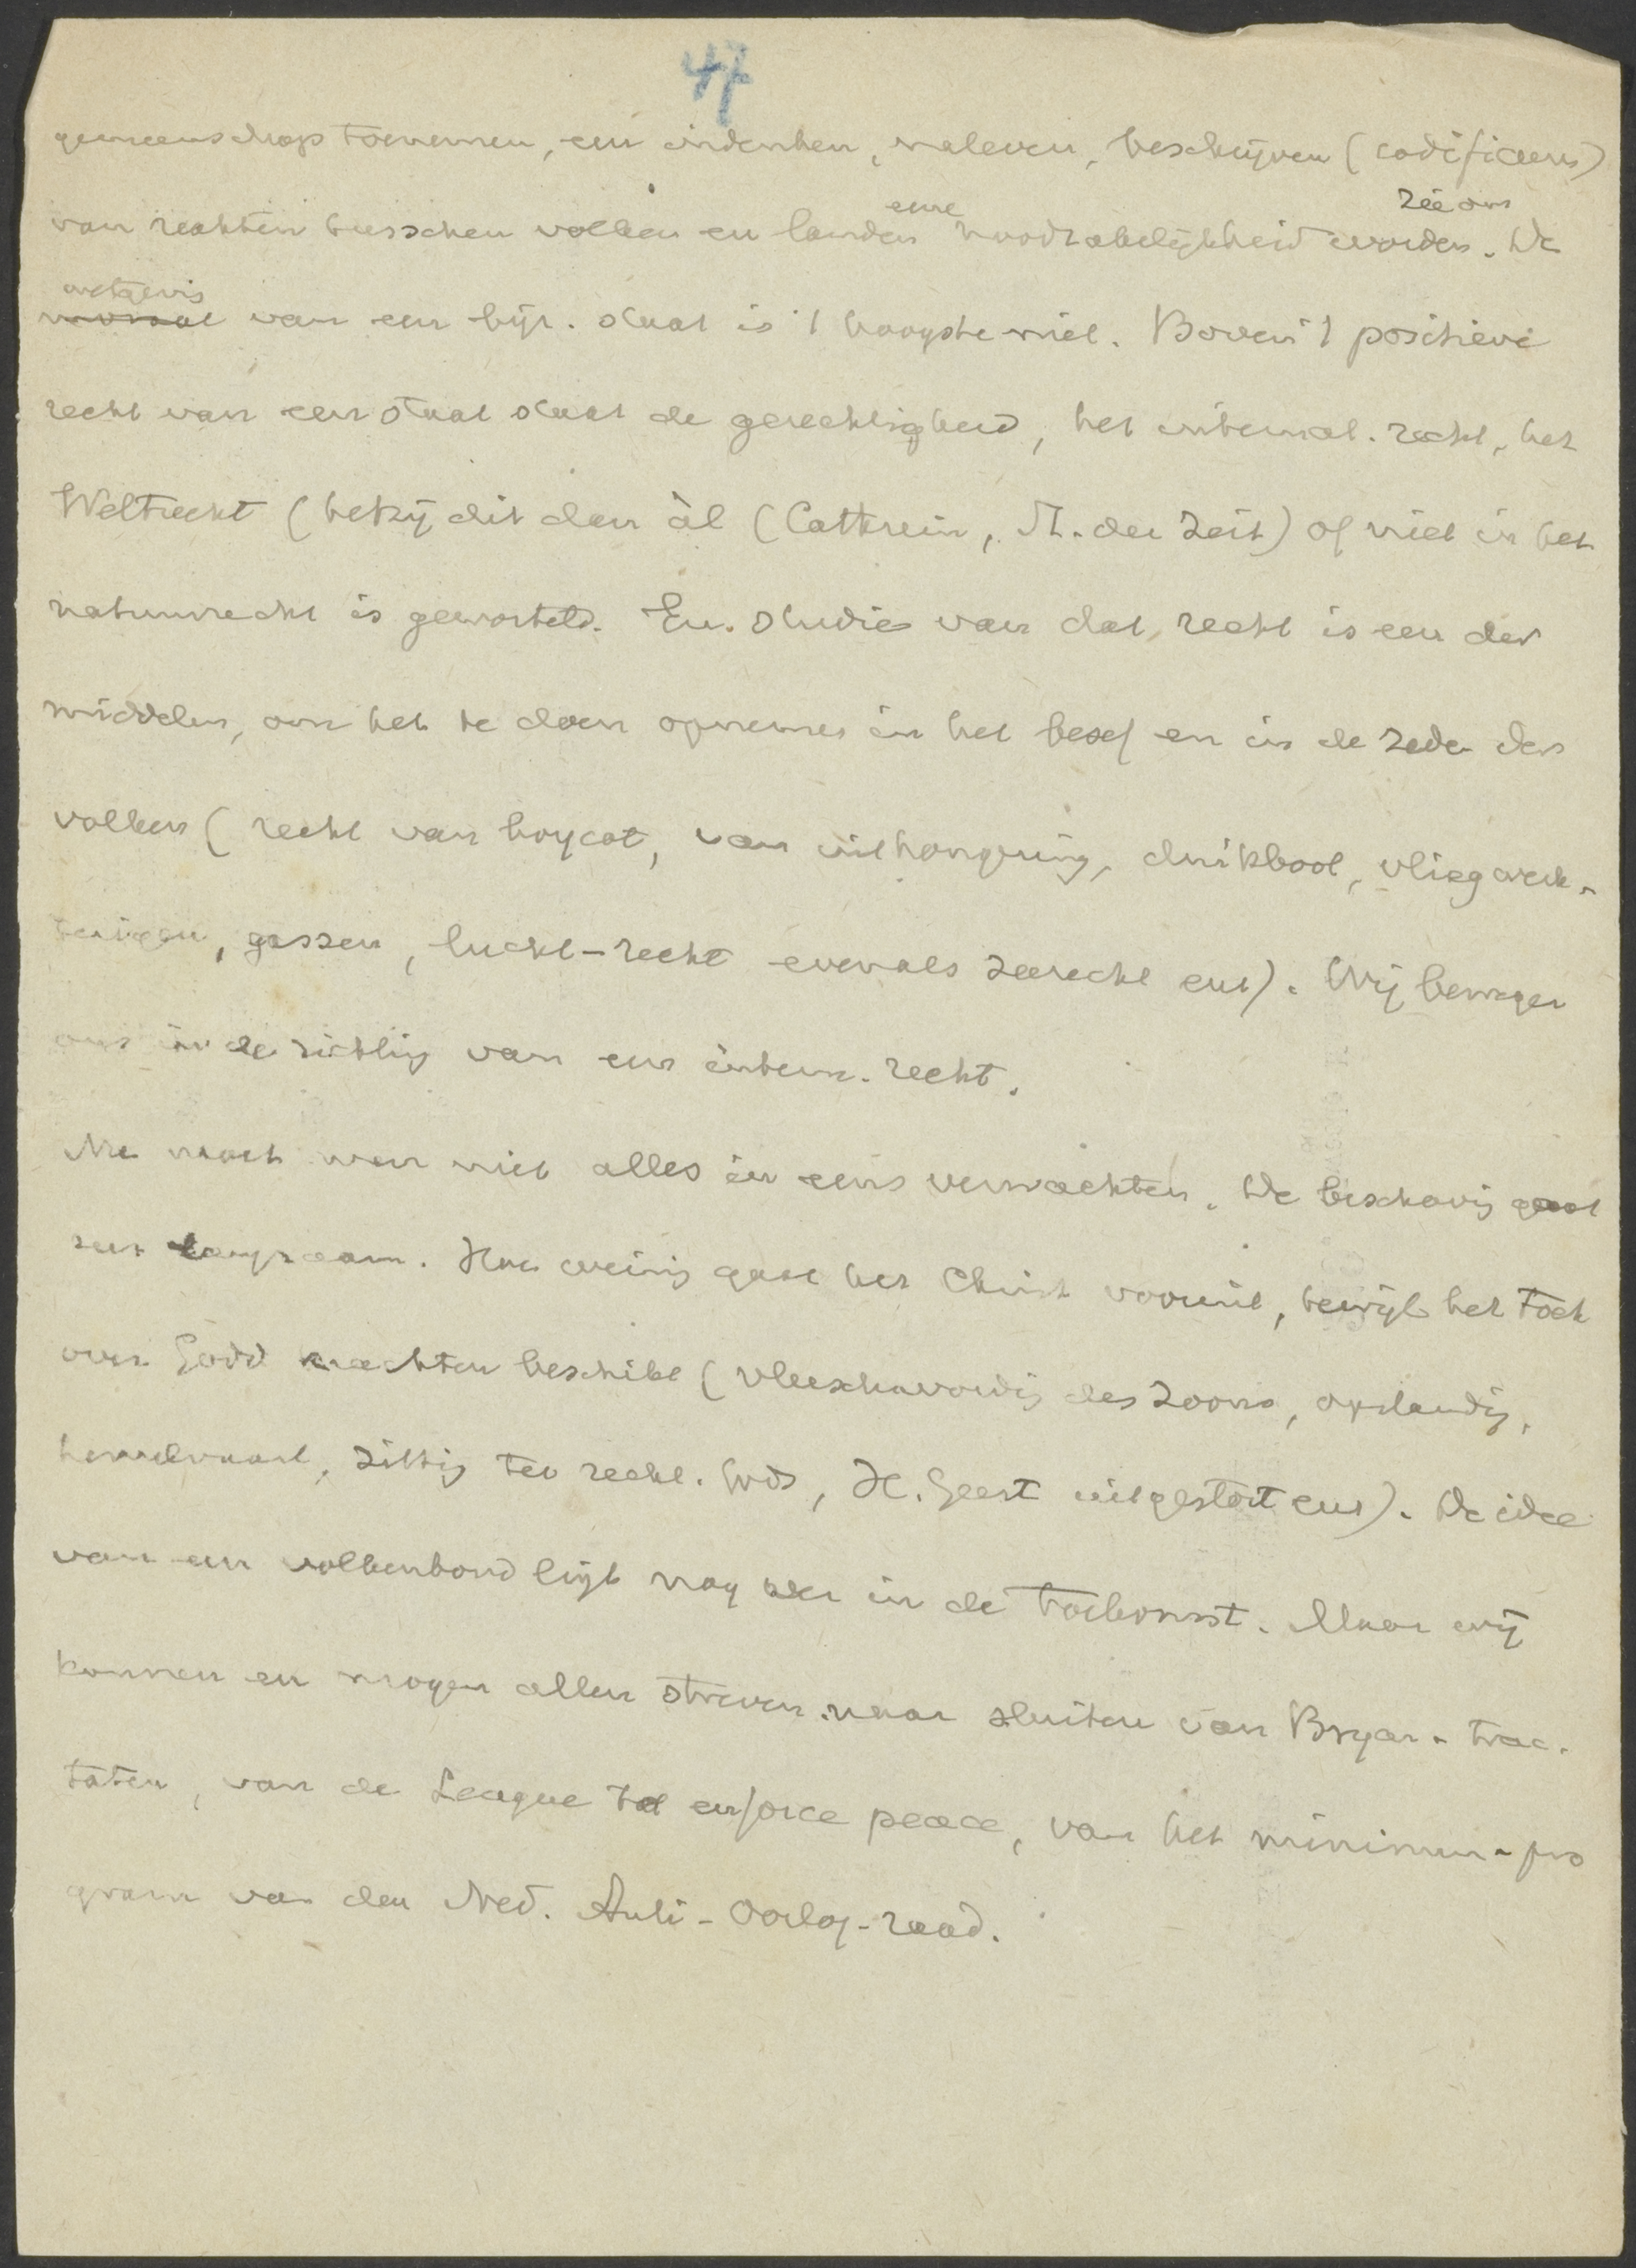 47
gemeenschap toenemen, een indenken, naleven, beschrijven (codificeeren)
van rechten tusschen volken en landen eene noodzakelijkheid worden. De
moraal wetgevig van een bijz. staat is 't hoogste niet. Boven 't positieve
recht van een staat staat de gerechtigheid, het internat. recht, het
Weltrecht (hetzij dit dan àl (Cathrein, St. der Zeit) of niet in het
natuurrecht is geworteld. En studie van dat recht is een der
middelen, om het te doen opnemen in het besef en in de zede der
volken (recht van boycot, van uithongering, duikboot, vliegwerk-
tuigen, gassen, lucht-recht evenals zeerecht enz). Wij bewegen
ons in de richtig van een intern. recht.
Nu moet men niet alles in eens verwachten. De beschavig gaat
zeer langzaam. Hoe weinig gaat het Christ vooruit, terwijl het toch
over Godd krachten beschikt (vleeschwordig des Zoons, opstandig,
hemelvaart, zittig ter recht. Gods, H. Geest uitgestort enz). De idee
van een volkenbond ligt nog ver in de toekomst. Maar wij
kunnen en mogen allen streven naar sluiten van Bryan-trac-
taten, van de League to enforce peace, van het minimum-pro
gram van den Ned. Anti-Oorlog-raad.